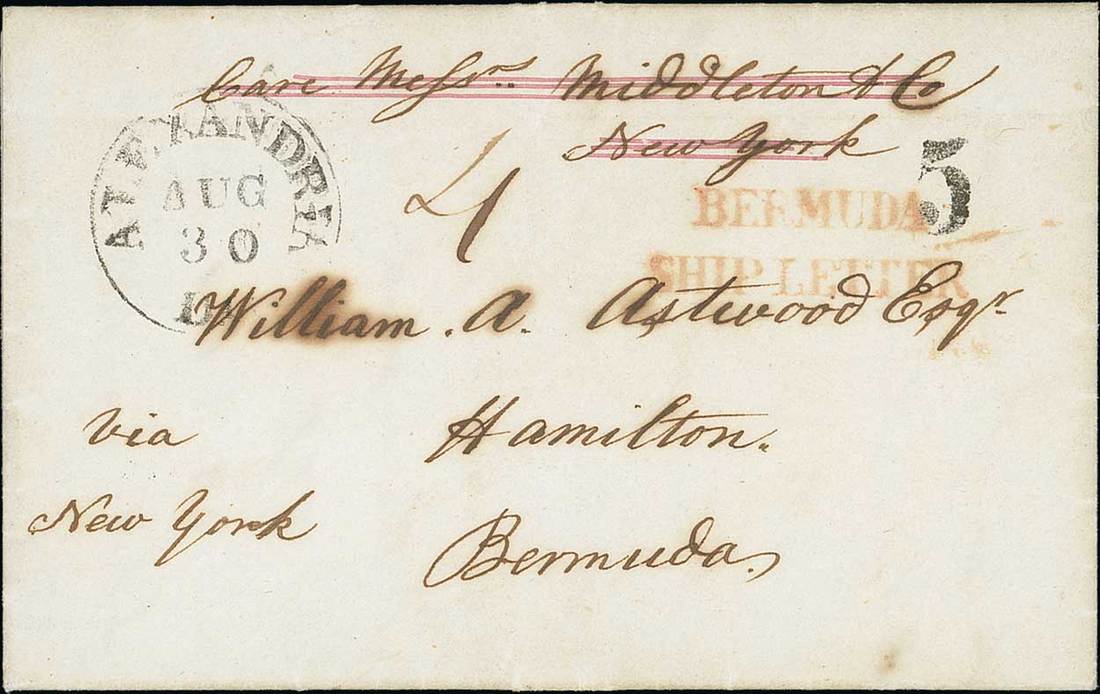 Care Messrs. Middleton & Co
New York
ALEXANDRIA
AUG
30
5
4
BERMUDA
SHIP LETTER
William . A. Astwood Esqr.
via
New York
Hamilton.
Bermuda.